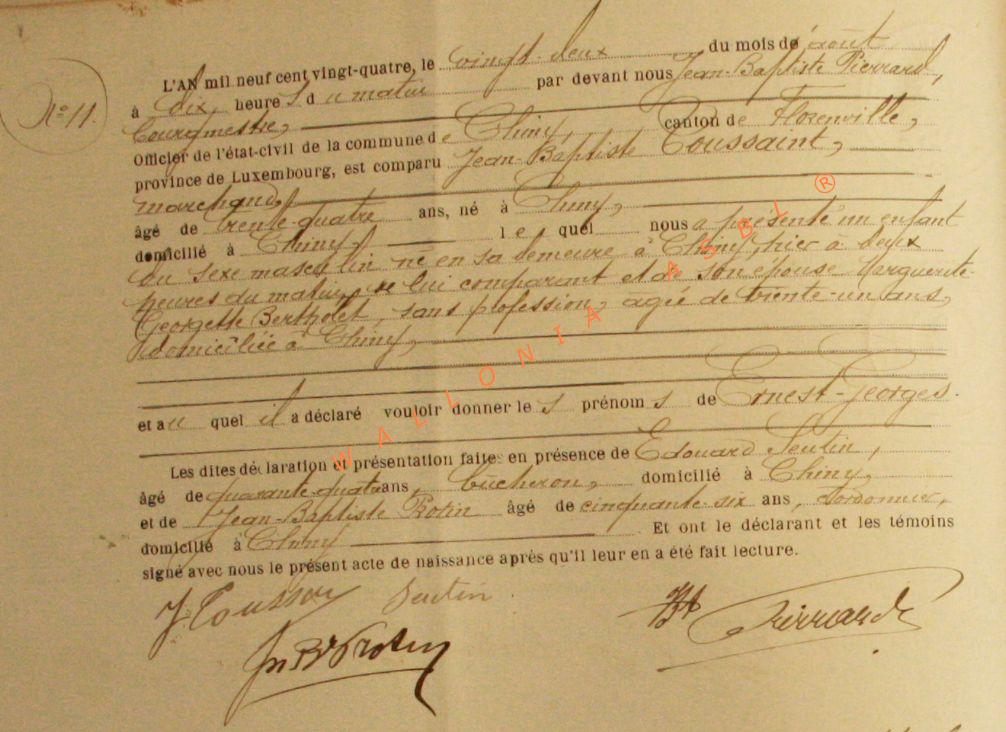 N° 11.
L'AN mil neuf cent vingt-quatre, le vingt-deux du mois de août
à dix heures du matin par devant nous Jean-Baptiste Pierrard,
bourgmestre,
Officier de l'état-civil de la commune de Chiny canton de Florenville,
province de Luxembourg, est comparu Jean-Baptiste Toussaint,
marchand,
âgé de trente-quatre ans, né à Chiny,
domicilié à Chiny, lequel nous a présenté un enfant
du sexe masculin né en sa demeure à Chiny, hier à deux
heures du matin, de lui comparant et de son épouse Marguerite-
Georgette Bertholet, sans profession, agée de trente-un ans,
domiciliée à Chiny,
et auquel il a déclaré vouloir donner les prénoms de Ernest-Georges.
Les dites déclaration et présentation faites en présence de Edouard Seutin,
âgé de quarante-quatre ans, bûcheron, domicilié à Chiny,
et de Jean-Baptiste Protin âgé de cinquante-six ans, cordonnier,
domicilié à Chiny. Et ont le déclarant et les témoins
signé avec nous le présent acte de naissance après qu'il leur en a été fait lecture.
J Toussaint Seutin.
Jn Bte Protin
JB Pierrard
WALLONIA ASBL ®